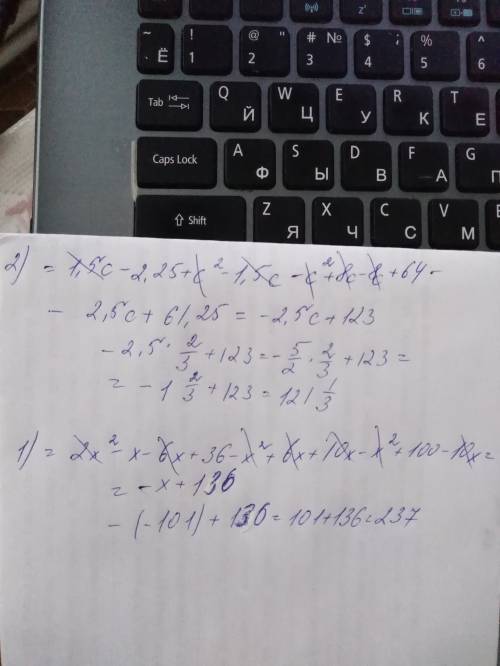 ~ Ё ! 1 @ " 2 # № 3 $ ; 4 % 5 ^ 6
Tab Q Й W Ц E У R К T Е
Caps Lock A Ф S Ы D В F А G П
Shift Z Я X Ч C С V М
2) = 1,5c - 2,25 + c² - 1,5c - c² + 8c - 8c + 64 -
- 2,5c + 61,25 = -2,5c + 123
-2,5 · 2/3 + 123 = -5/2 · 2/3 + 123 =
= -1 2/3 + 123 = 121 1/3
1) = 2x² - x - 6x + 36 - x² + 6x + 10x - x² + 100 - 10x =
= -x + 136
- (-101) + 136 = 101 + 136 = 237